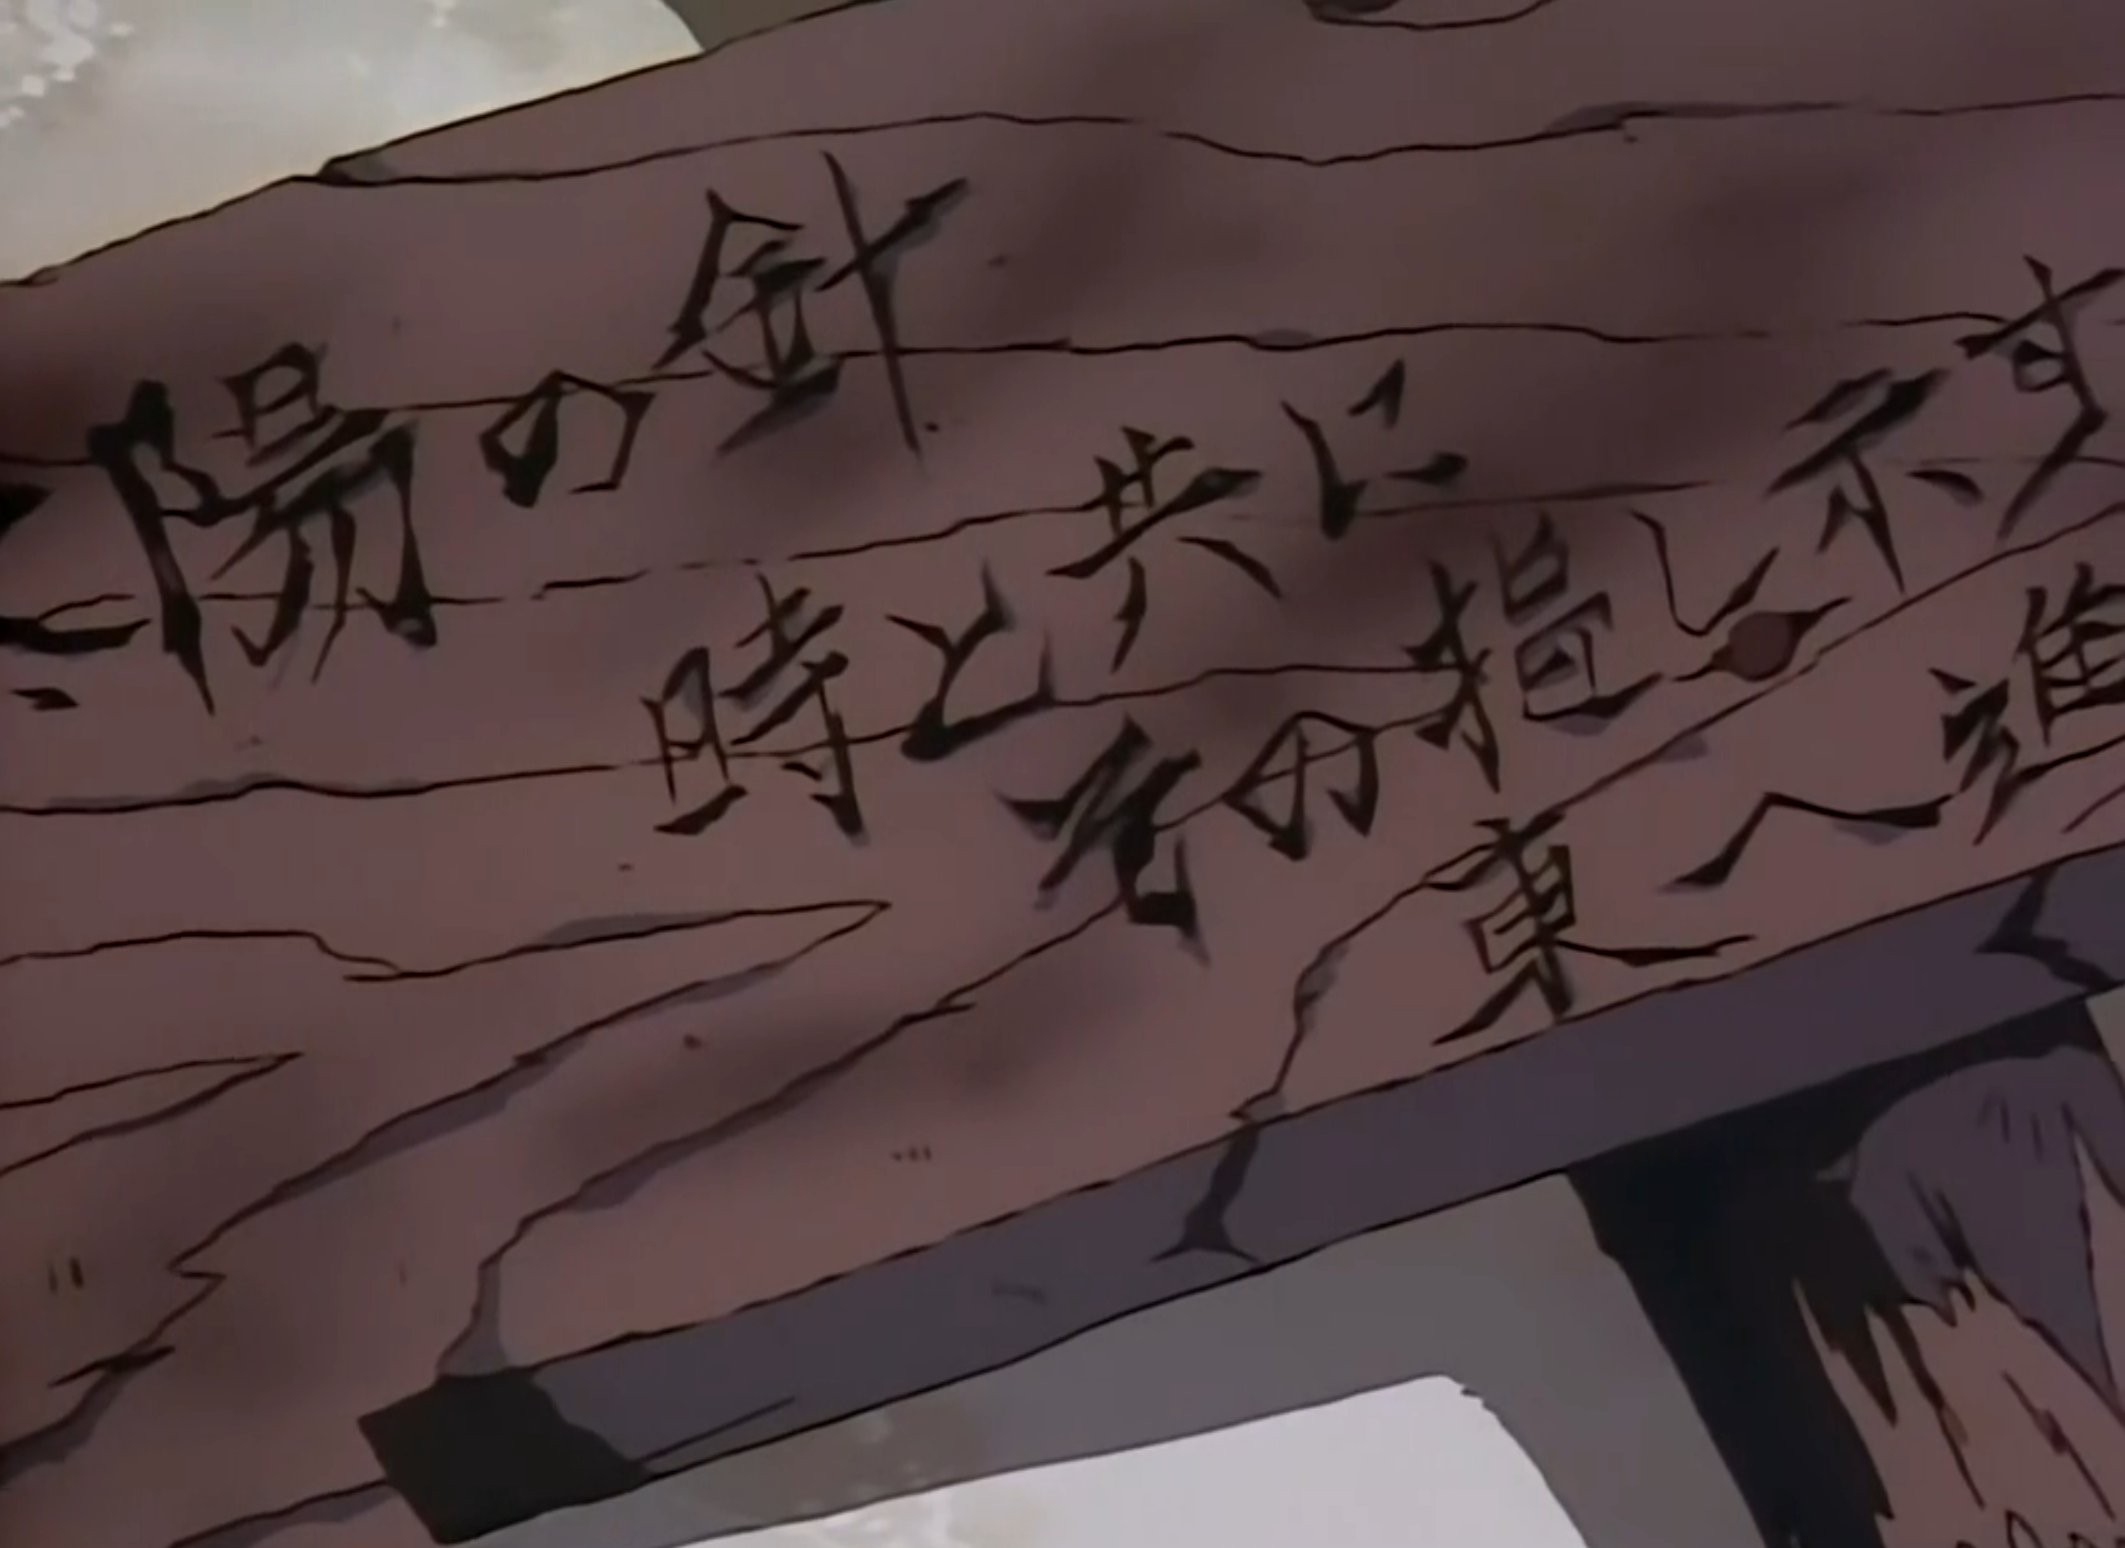 陽の針
時と共に
光の指し示す
東へ進